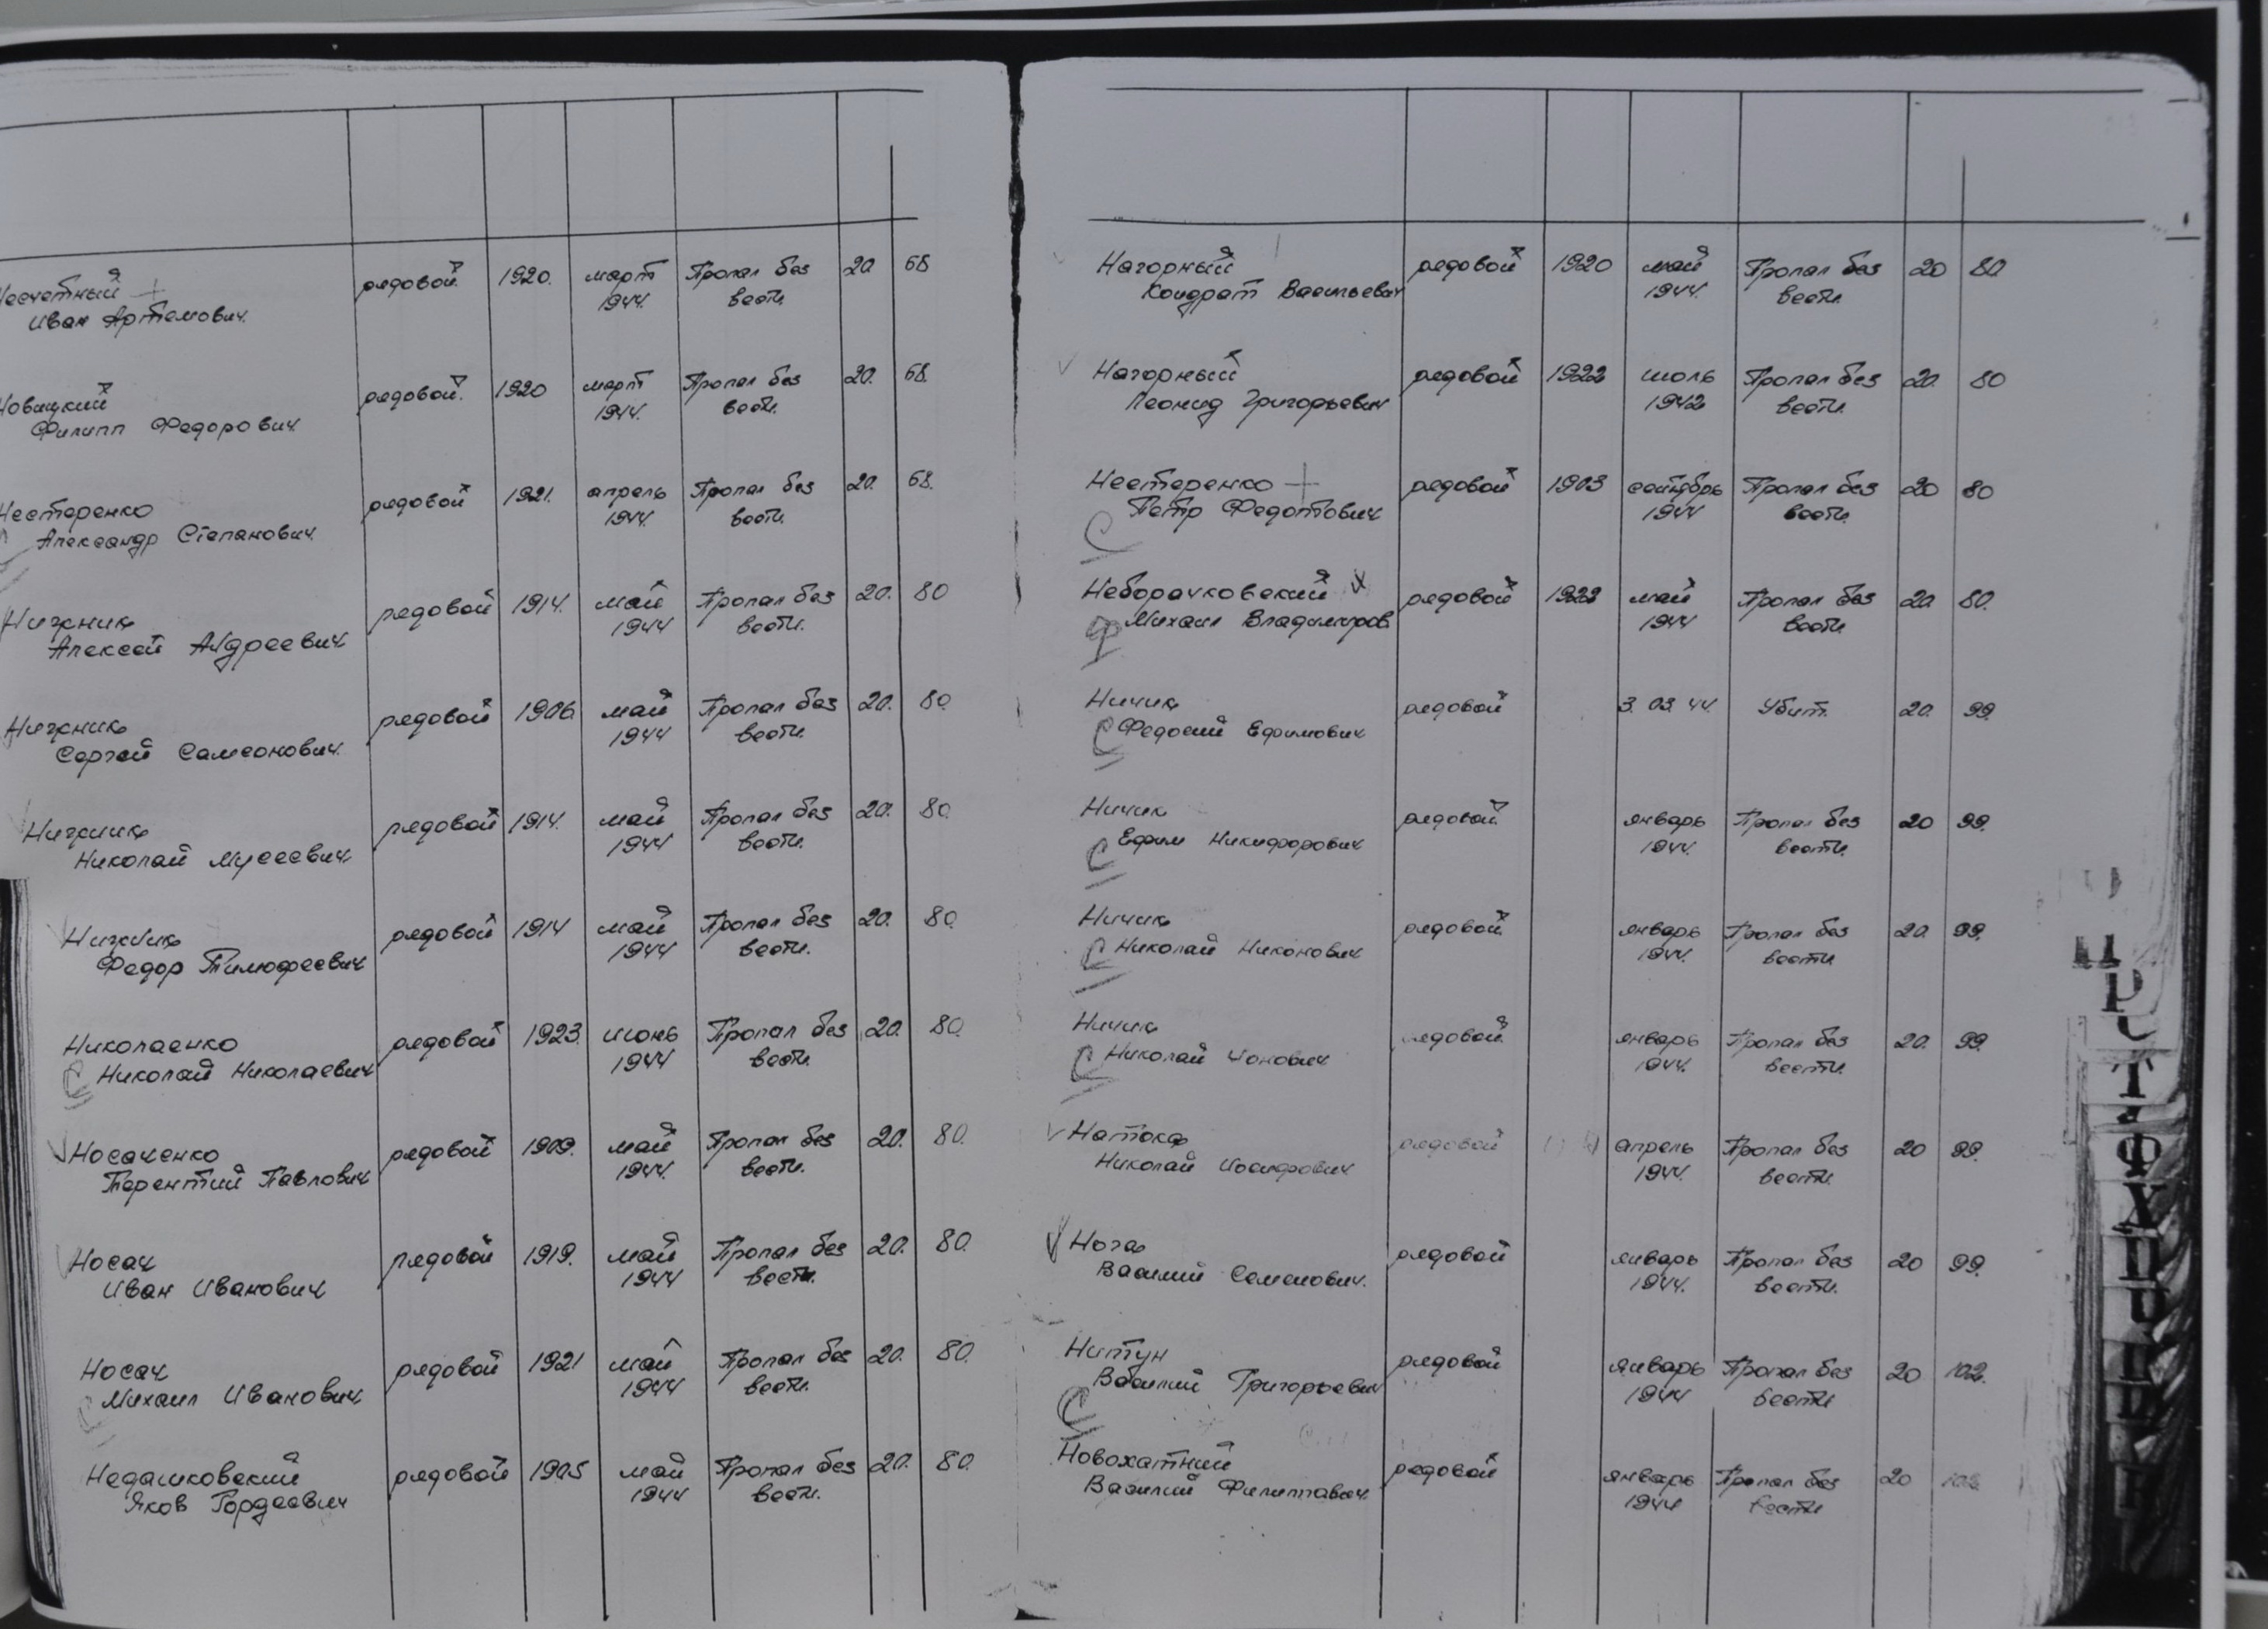 Несчетный рядовой 1920. март Пропал без 20 68
Иван Артемович. 1944. вести.
Новицкий рядовой. 1920 март Пропал без 20. 68.
Филипп Федорович 1944. вести.
Нестеренко рядовой 1921. апрель Пропал без 20. 68.
Александр Степанович 1944. вести.
Нижник рядовой 1914. май Пропал без 20. 80
Алексей Андреевич 1944 вести.
Нижник рядовой 1906. май Пропал без 20. 80.
Сергей Самсонович. 1944 вести.
Нижник рядовой 1914. май Пропал без 20. 80.
Николай Мусеевич 1944 вести.
Нижник рядовой 1914 май Пропал без 20. 80.
Федор Тимофеевич 1944 вести.
Николаенко рядовой 1923. июнь Пропал без 20. 80.
С Николай Николаевич 1944 вести.
Носаченко рядовой 1909. май Пропал без 20. 80.
Терентий Павлович 1944. вести.
Носач рядовой 1919. май Пропал без 20. 80.
Иван Иванович 1944 вести.
Носач рядовой 1921 май Пропал без 20. 80.
С Михаил Иванович 1944 вести.
Недашковский рядовой 1905 май Пропал без 20. 80.
Яков Гордеевич 1944 вести.
Нагорный рядовой 1920 май Пропал без 20 80
Кондрат Васильевич 1944. вести.
Нагорный рядовой 1922 июль Пропал без 20. 80
Леонид Григорьевич 1942 вести.
Нестеренко рядовой 1903 сентябрь Пропал без 20 80
С Петр Федотович 1944 вести.
Неборачковский рядовой 1922 май Пропал без 20 80.
Ф Михаил Владимиров. 1944 вести.
Ничик рядовой 3. 03. 44. Убит. 20. 99.
С Федосий Ефимович
Ничик рядовой январь Пропал без 20 99.
С Ефим Никифорович 1944. вести.
Ничик рядовой январь Пропал без 20. 99.
С Николай Никонович 1944. вести.
Ничик рядовой январь Пропал без 20. 99.
С Николай Ионович 1944. вести.
Натока рядовой апрель Пропал без 20 99.
Николай Иосифович 1944. вести.
Нога рядовой январь Пропал без 20 99.
Василий Семенович. 1944. вести.
Нитун рядовой январь Пропал без 20 102.
С Василий Григорьевич 1944 вести
Новохатний рядовой январь Пропал без 20 102
Василий Филиппович. 1944 вести
Р
С
Т
Ф
Х